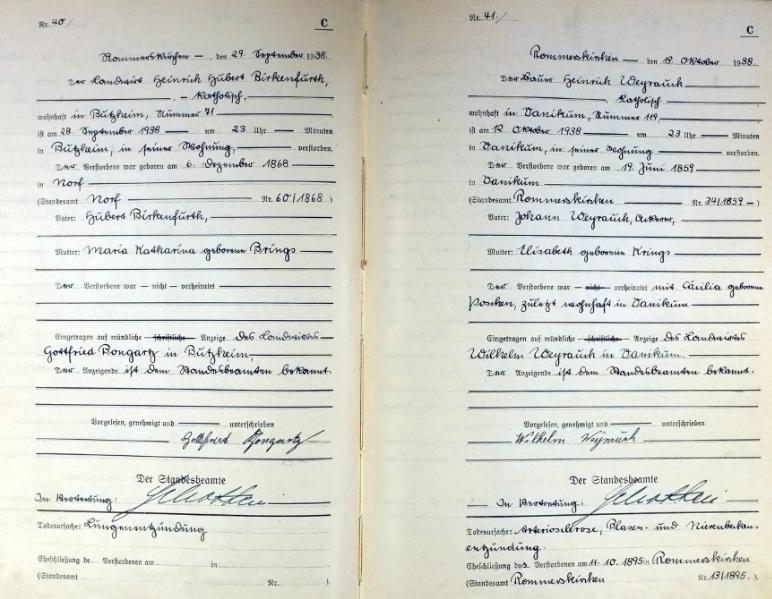 Nr. 40
C
Rommerskirchen —, den 29. September 1938.
Der Landwirt Heinrich Hubert Birkenfurth,
— katholisch,
wohnhaft in Bützheim, Nummer 71
ist am 28. September 1938 — um 23 Uhr — Minuten
in Bützheim, in seiner Wohnung, verstorben.
Der Verstorbene war geboren am 6. Dezember 1868
in Norf
(Standesamt Norf — Nr. 60/1868.)
Vater: Hubert Birkenfurth,
Mutter: Maria Katharina geborene Brings
Der Verstorbene war — nicht — verheiratet
Eingetragen auf mündliche — schriftliche — Anzeige des Landwirtes
Gottfried Bongartz in Bützheim,
Der Anzeigende ist dem Standesbeamten bekannt.
Vorgelesen, genehmigt und — unterschrieben
Gottfried Bongartz
Der Standesbeamte
In Vertretung:
Todesursache: Lungenentzündung
Eheschließung de... Verstorbenen am ... in
(Standesamt Nr. )
Nr. 41.
C
Rommerskirchen — den 13. Oktober 1938.
Der Bauer Heinrich Weyrauch
katholisch
wohnhaft in Vanikum, Nummer 119,
ist am 12. Oktober 1938 — um 23 Uhr — Minuten
in Vanikum, in seiner Wohnung verstorben.
Der Verstorbene war geboren am 19. Juni 1859
in Vanikum
(Standesamt Rommerskirchen Nr. 34/1859 —)
Vater: Johann Weyrauch, Ackerer,
Mutter: Elisabeth geborene Krings
Der Verstorbene war — nicht — verheiratet mit Cäcilia geborene
Poschen, zuletzt wohnhaft in Vanikum
Eingetragen auf mündliche — schriftliche — Anzeige des Landwirtes
Wilhelm Weyrauch in Vanikum.
Der Anzeigende ist dem Standesbeamten bekannt.
Vorgelesen, genehmigt und — unterschrieben
Wilhelm Weyrauch
Der Standesbeamte
In Vertretung:
Todesursache: Arteriosclerose, Blasen- und Nierenbeken-
entzündung.
Eheschließung des Verstorbenen am 11. 10. 1895 in Rommerskirchen
(Standesamt Rommerskirchen Nr. 13/1895.)